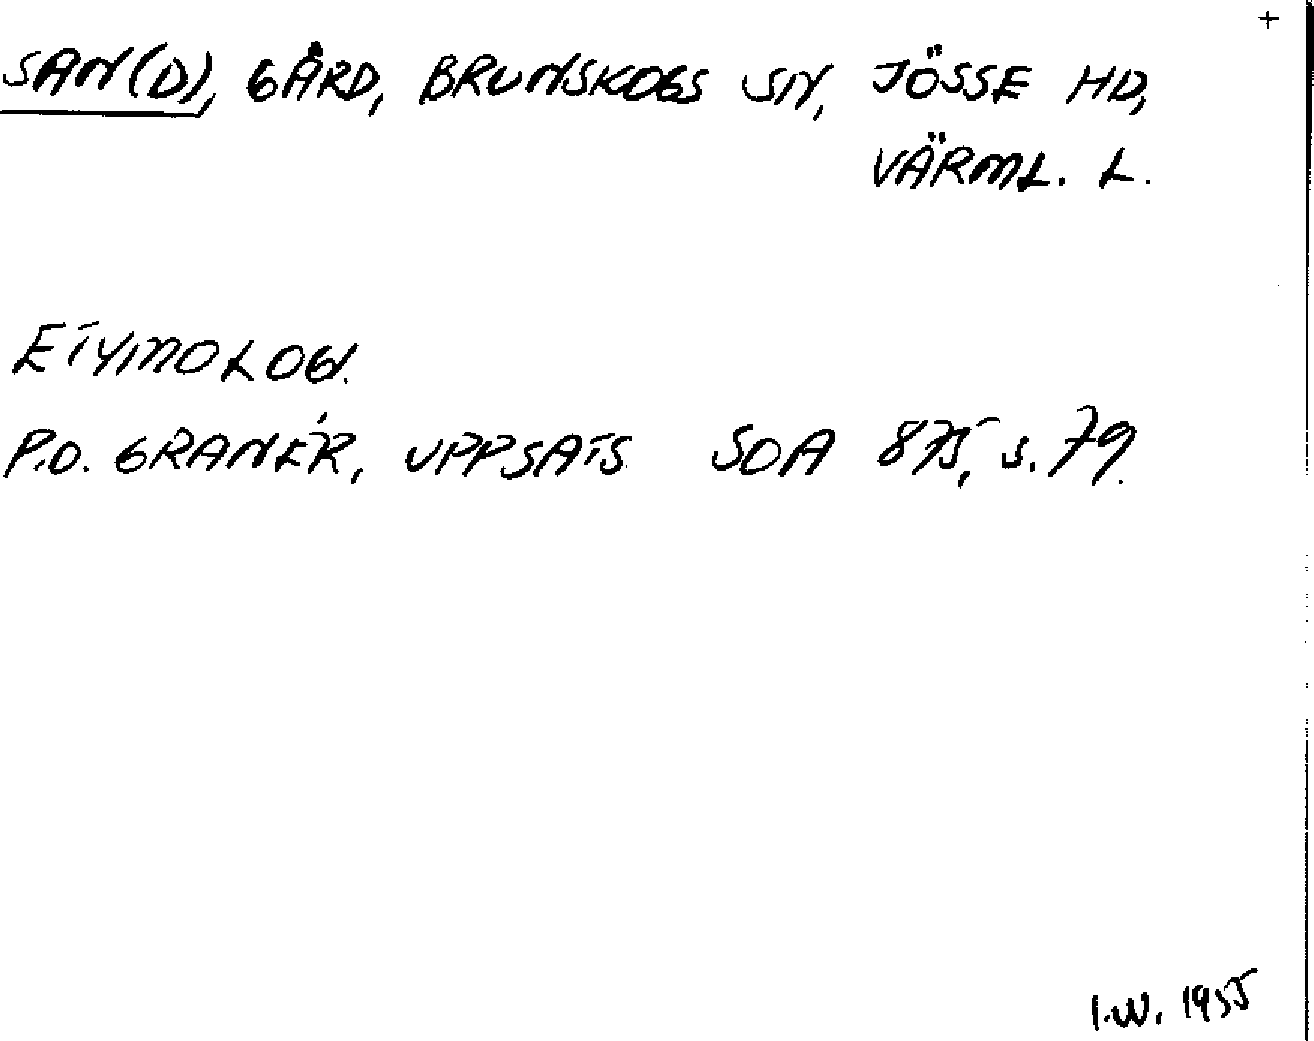 +
SAN(D), GÅRD, BRUNSKOGS SN, JÖSSE HD,
VÄRML. L.
ETYMOLOGI.
P.O. GRANÉR, UPPSATS SOA 875, s. 79.
I.W. 1955